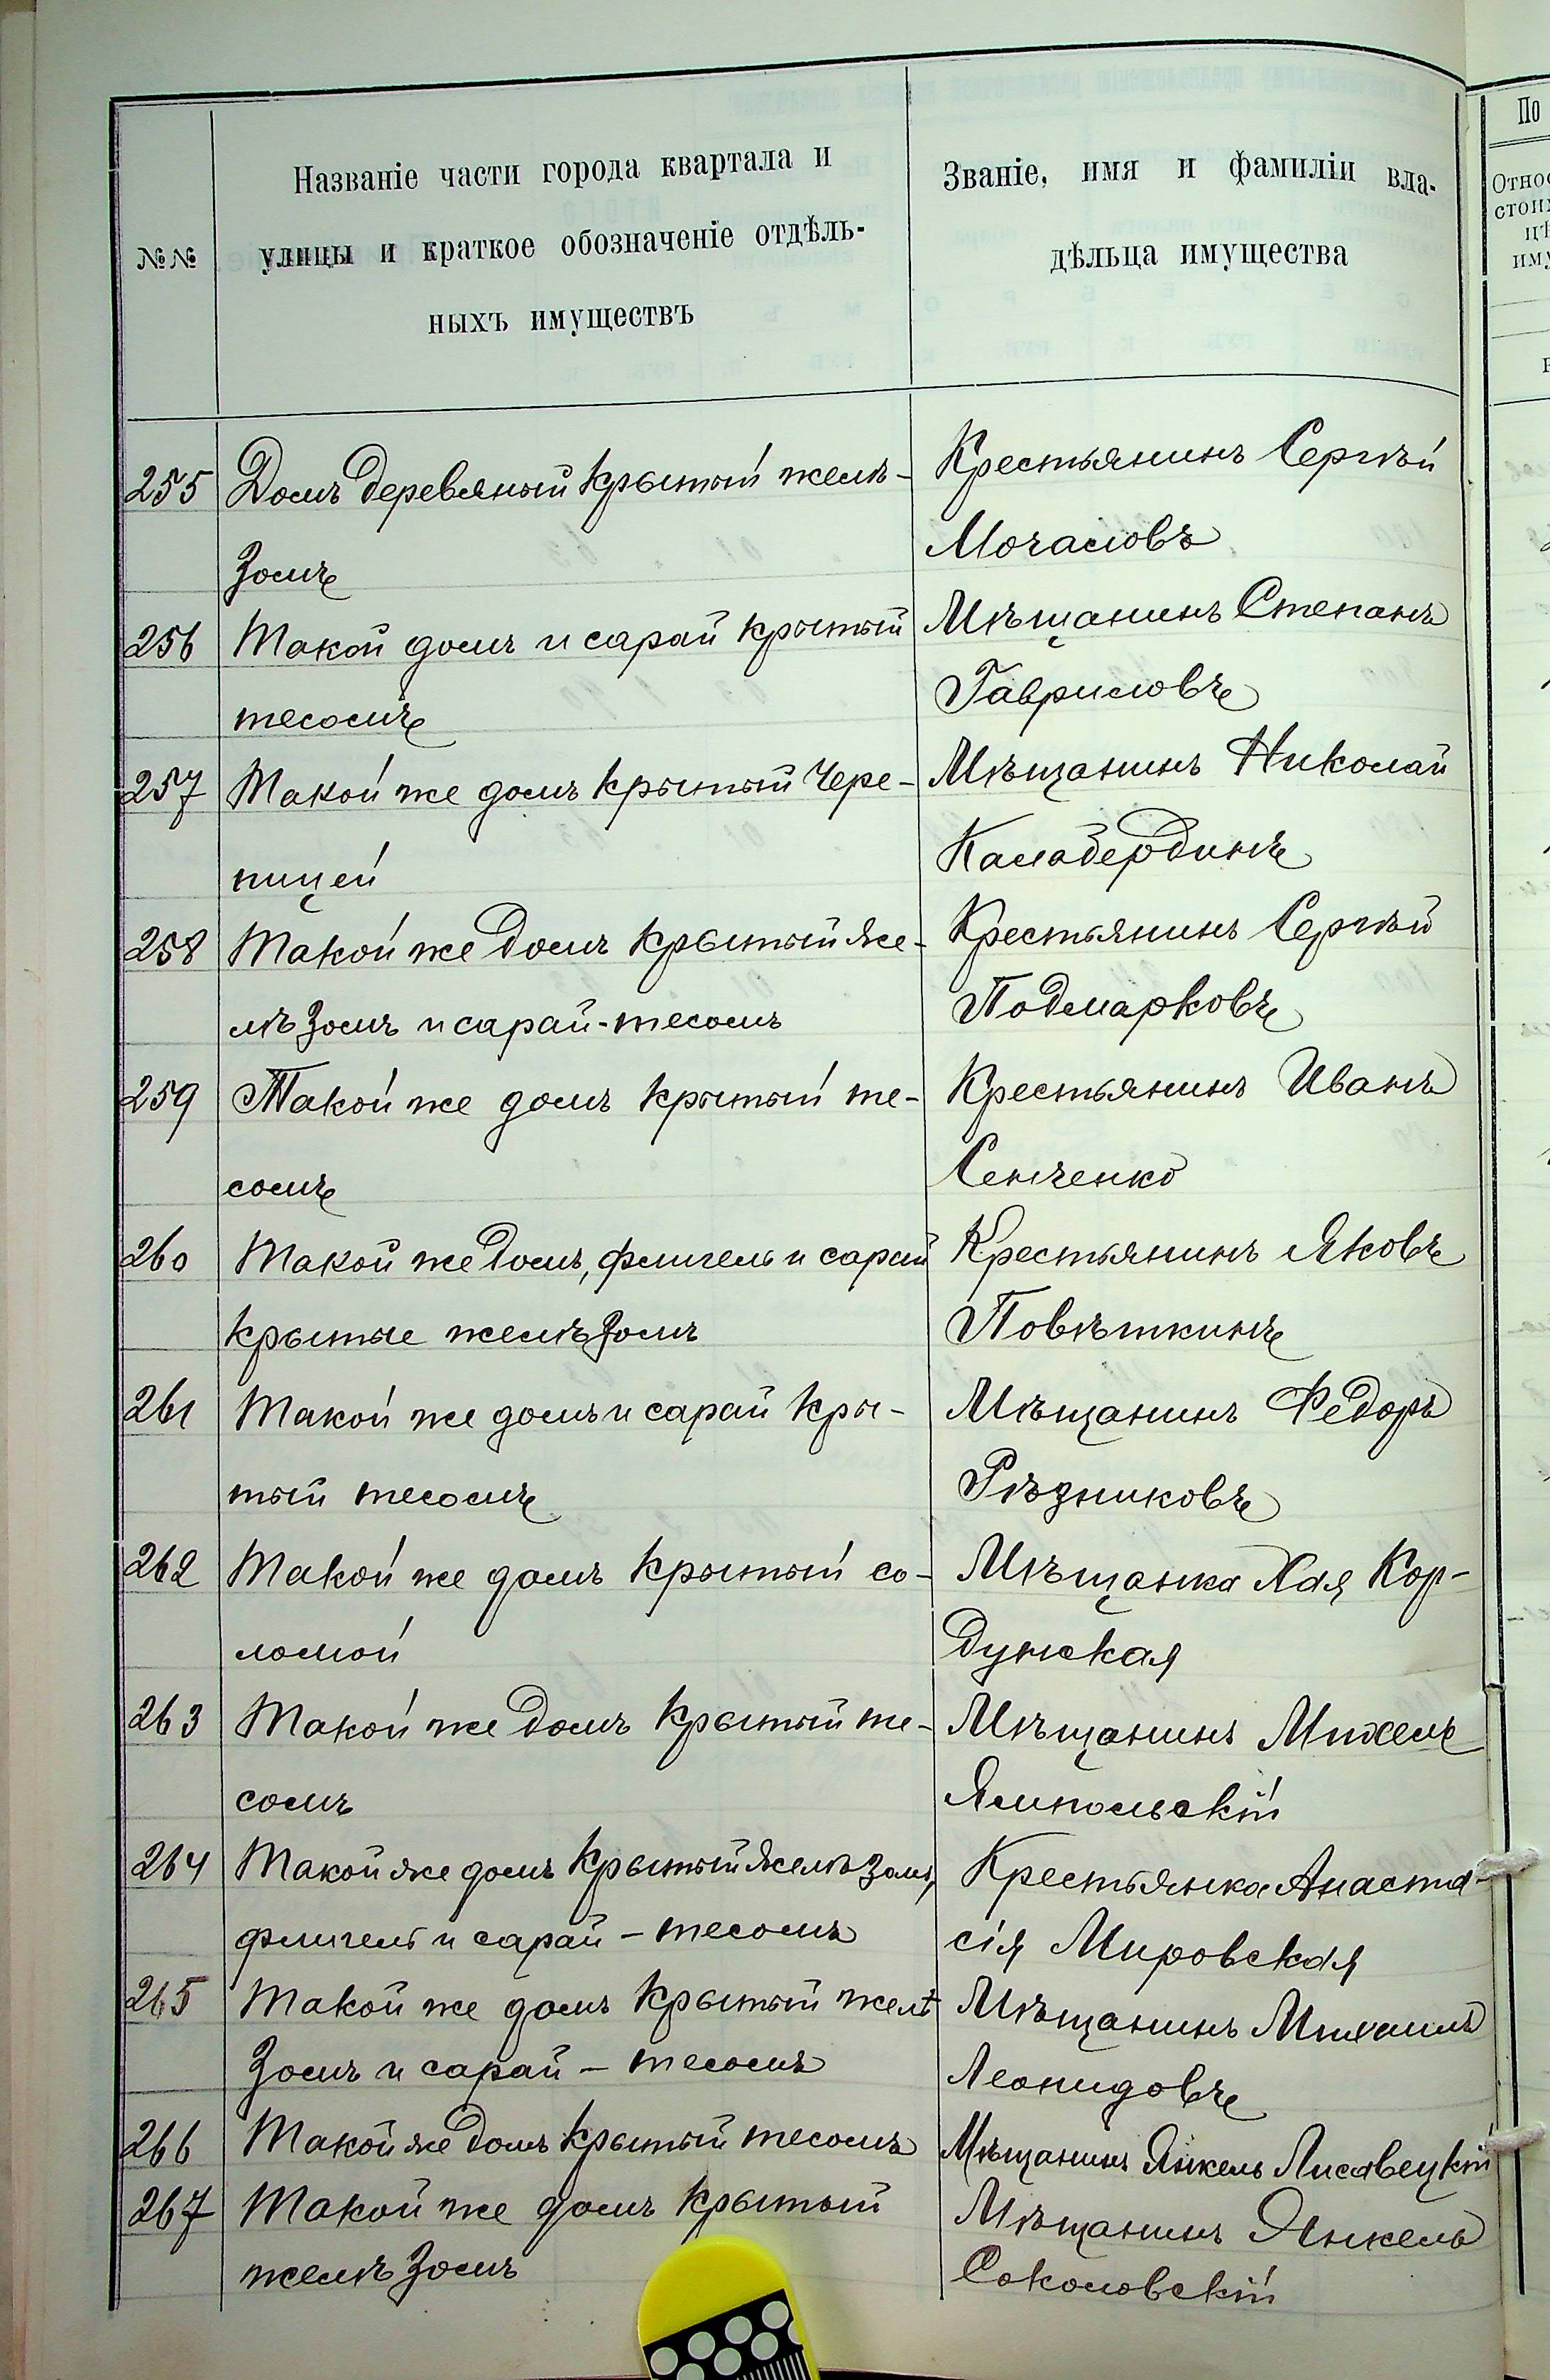 №№
Названіе части города квартала и
улицы и краткое обозначеніе отдѣль-
ныхъ имуществъ
Званіе, имя и фамиліи вла-
дѣльца имущества
255 Домъ деревяный крытый желѣ-
зомъ
Крестьянинъ Сергѣй
Мочаловъ
256 Такой домъ и сарай крытый
тесомъ
Мѣщанинъ Степанъ
Гавриловъ
257 Такой же домъ крытый чере-
пицей
Мѣщанинъ Николай
Калабердинъ
258 Такой же домъ крытый же-
лѣзомъ и сарай-тесомъ
Крестьянинъ Сергѣй
Подмарковъ
259 Такой же домъ крытый те-
сомъ
Крестьянинъ Иванъ
Сенченко
260 Такой же домъ, флигель и сарай
крытые желѣзомъ
Крестьянинъ Яковъ
Повѣткинъ
261 Такой же домъ и сарай кры-
тый тесомъ
Мѣщанинъ Федоръ
Рѣзниковъ
262 Такой же домъ крытый со-
ломой
Мѣщанка Хая Кор-
дунская
263 Такой же домъ крытый те-
сомъ
Мѣщанинъ Михель
Ямпольскій
264 Такой же домъ крытый желѣзомъ,
флигель и сарай - тесомъ
Крестьянка Анаста-
сія Мировская
265 Такой же домъ крытый желѣ
зомъ и сарай - тесомъ
Мѣщанинъ Михаилъ
Леонидовъ
266 Такой же домъ крытый тесомъ
Мѣщанинъ Янкель Лисавецкій
267 Такой же домъ крытый
желѣзомъ
Мѣщанинъ Янкель
Соколовскій
По